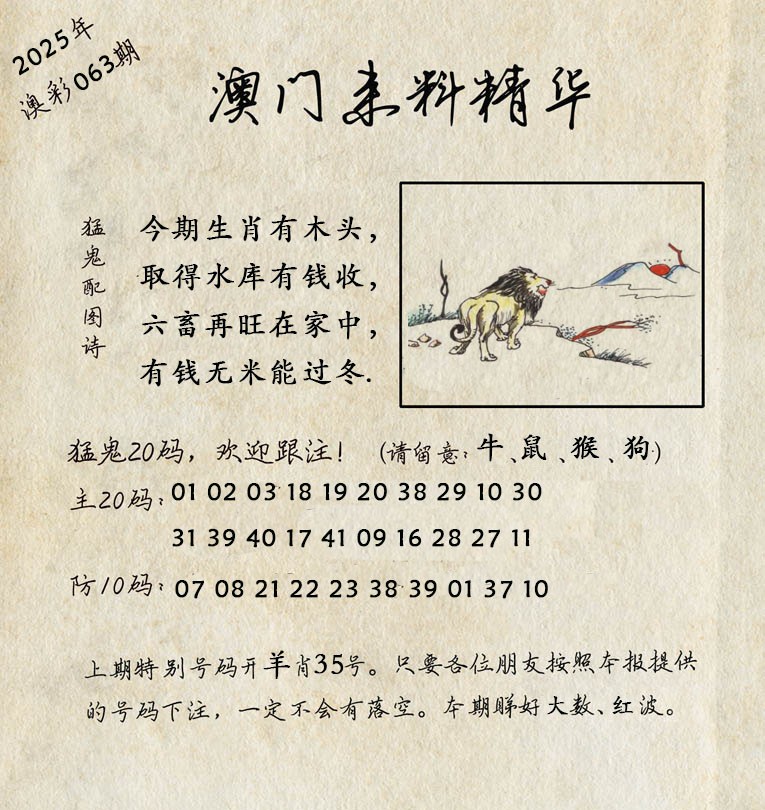 2025年
澳彩063期
澳门来料精华
猛鬼配图诗
今期生肖有木头，
取得水库有钱收，
六畜再旺在家中，
有钱无米能过冬.
猛鬼20码，欢迎跟注！（请留意：牛、鼠、猴、狗）
主20码：01 02 03 18 19 20 38 29 10 30
31 39 40 17 41 09 16 28 27 11
防10码：07 08 21 22 23 38 39 01 37 10
上期特别号码开羊肖35号。只要各位朋友按照本报提供
的号码下注，一定不会有落空。本期睇好大数、红波。